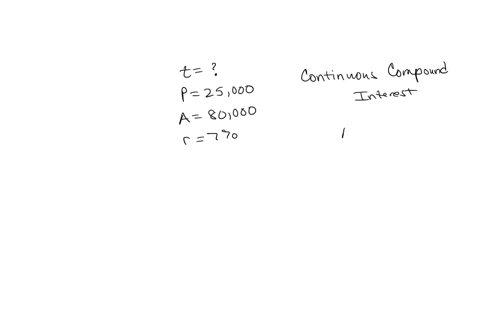 t = ?
P = 25,000
A = 80,000
r = 7%
Continuous Compound
Interest